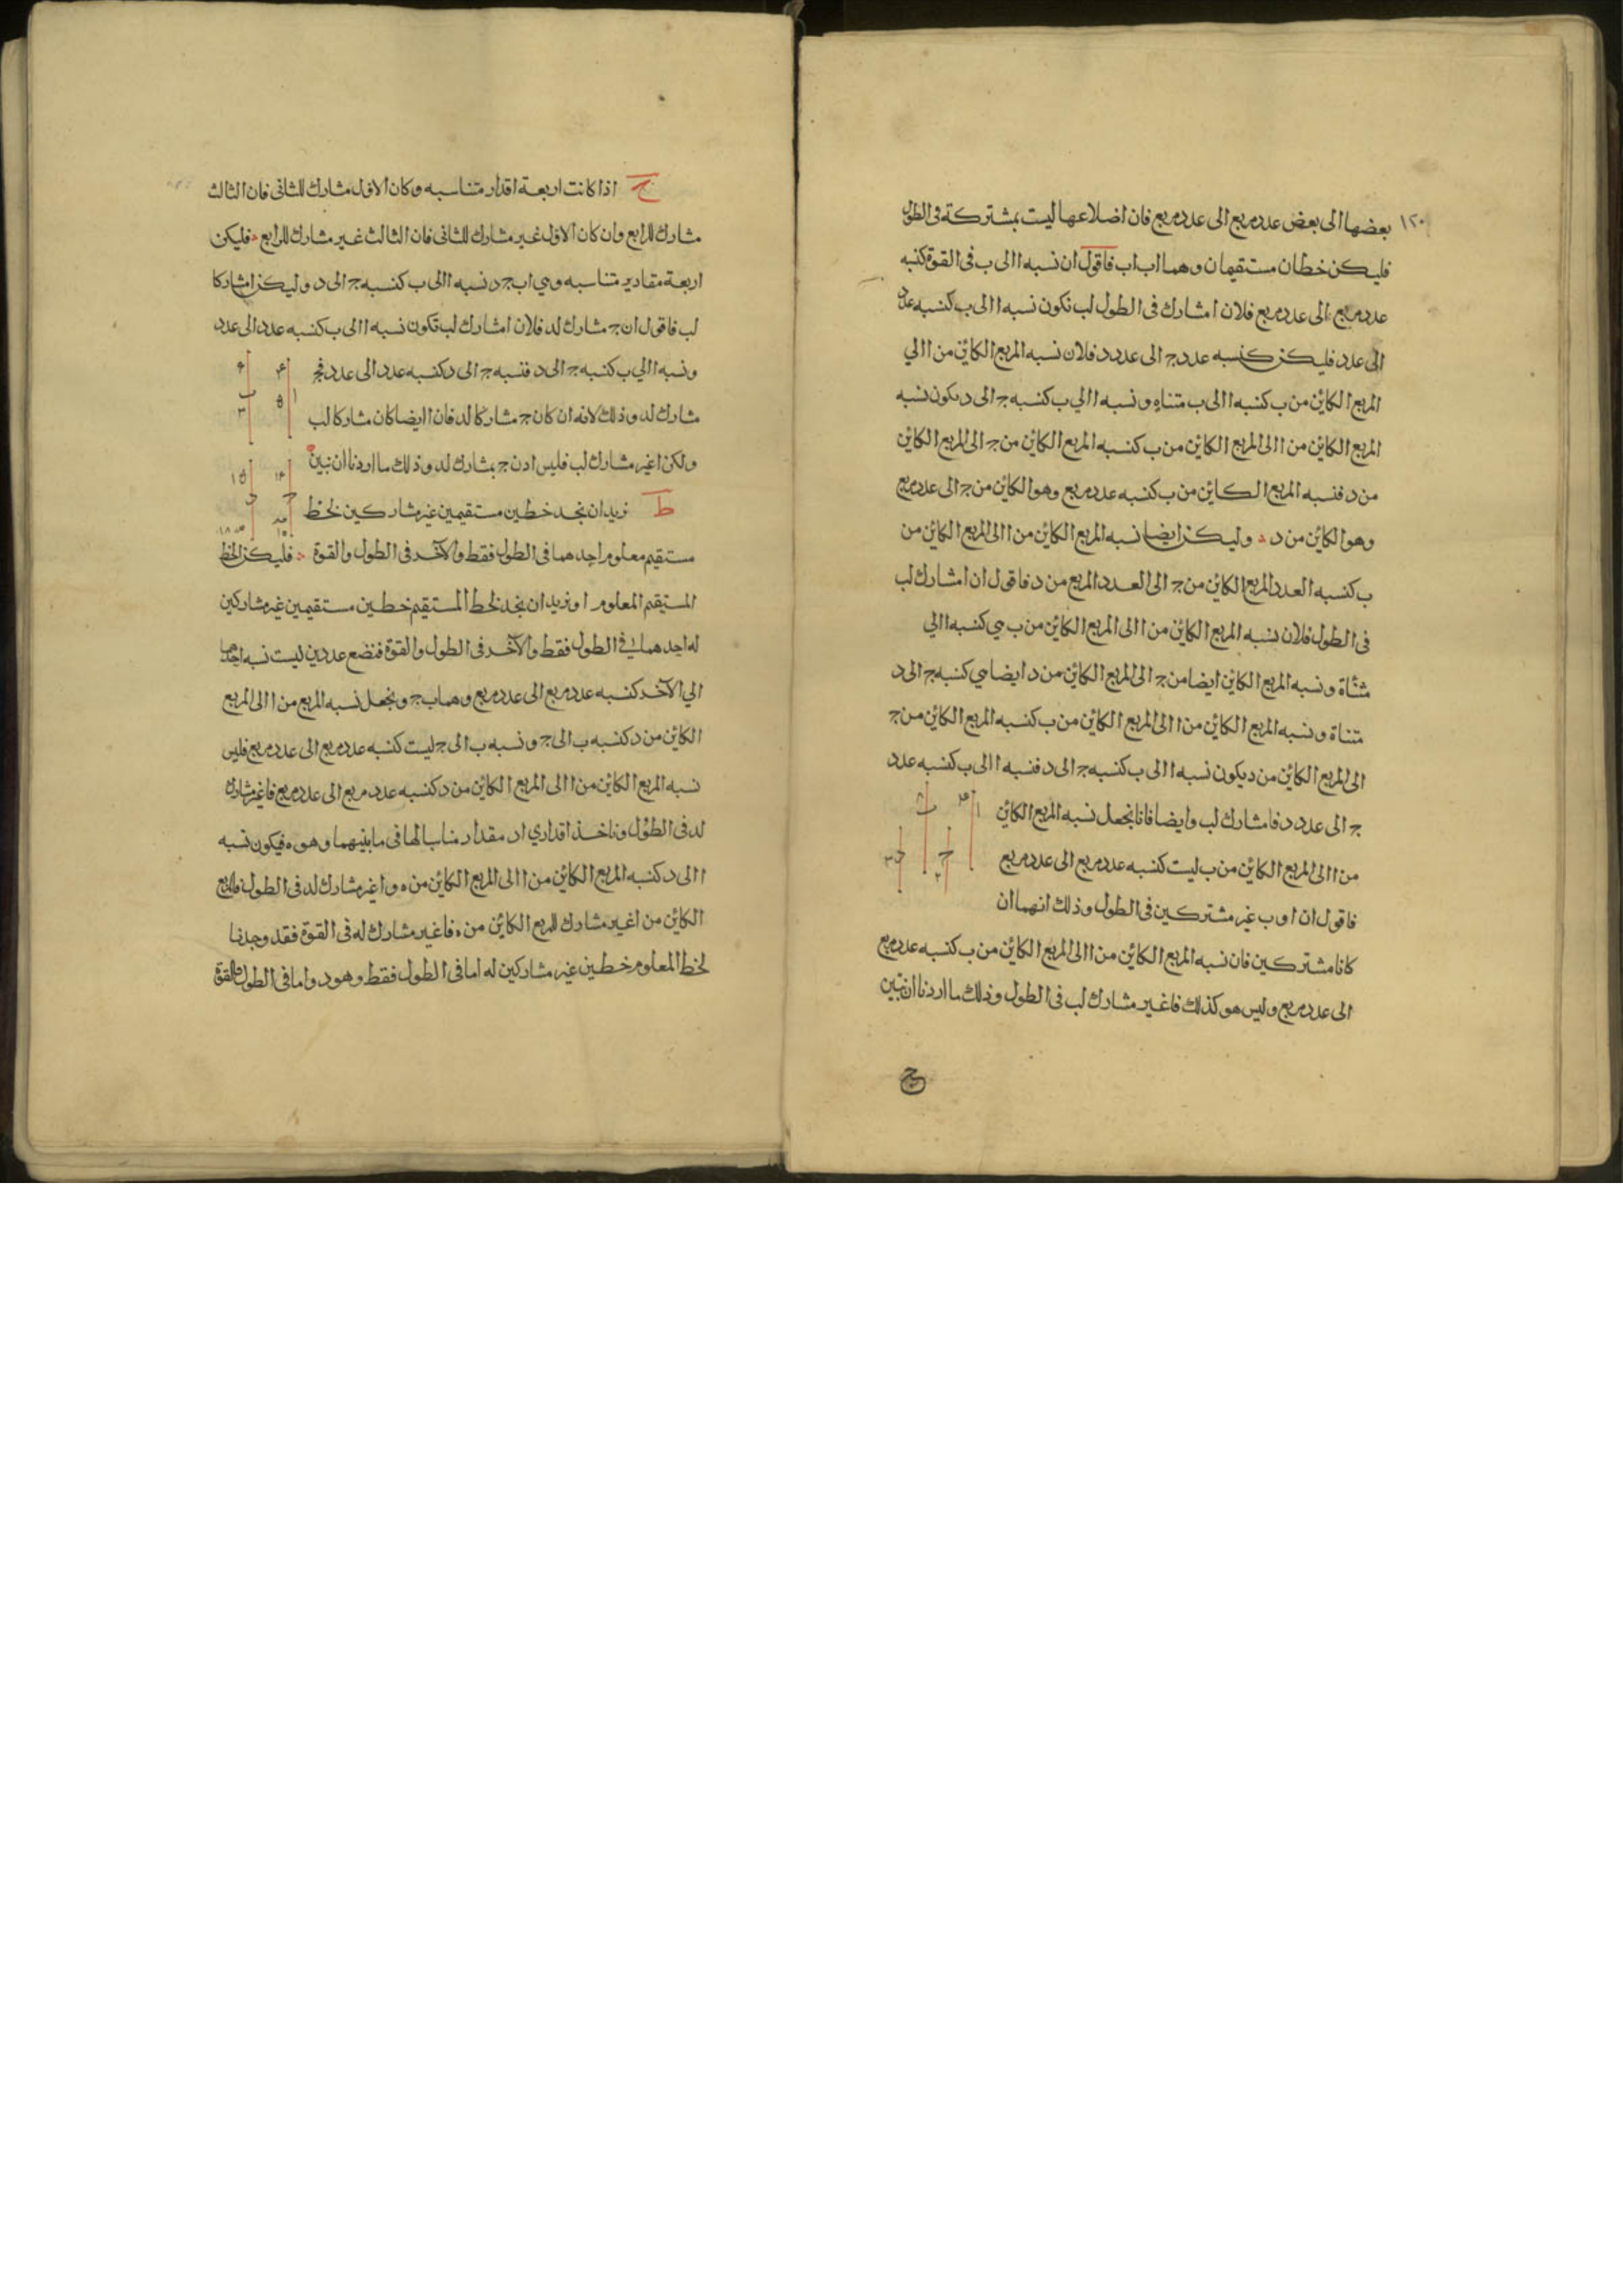 ١٢٠
بعضها الى بعض عدد مربع الى عدد مربع فان اضلاعها ليست بمشتركة فى الطول
فليكن خطان مستقيمان وهما ا ب ا ب فاقول ان نسبه ا الى ب فى القوة كنسبه
عدد مربع الى عدد مربع فلان ا مشارك فى الطول لب تكون نسبه ا الى ب كنسبه عدد
الى عدد فليكن كنسبه عدد ج الى عدد د فلان نسبه المربع الكائن من ا الي
المربع الكائن من ب كنسبه ا الى ب مثناه ونسبه ا الي ب كنسبه ج الى د يكون نسبه
المربع الكائن من ا الى المربع الكائن من ب كنسبه المربع الكائن من ج الى المربع الكائن
من د فنسبه المربع الكائن من ب كنسبه عدد مربع وهو الكائن من ج الى عدد مربع
وهو الكائن من د وليكن ايضا نسبه المربع الكائن من ا الى المربع الكائن من
ب كنسبه العدد المربع الكائن من ج الى العدد المربع من د فاقول ان ا مشارك لب
فى الطول فلان نسبه المربع الكائن من ا الى المربع الكائن من ب هي كنسبه ا الي
مثناة ونسبه المربع الكائن ايضا من ج الى المربع الكائن من د ايضا هي كنسبه ج الى د
مثناة ونسبه المربع الكائن من ا الى المربع الكائن من ب كنسبه المربع الكائن من ج
الى المربع الكائن من د يكون نسبه ا الى ب كنسبه ج الى د فنسبه ا الى ب كنسبه عدد
ج الى عدد د فا مشارك لب وايضا فانا نجعل نسبه المربع الكائن
من ا الى المربع الكائن من ب ليست كنسبه عدد مربع الى عدد مربع
فاقول ان ا و ب غير مشتركين فى الطول وذلك انهما ان
كانا مشتركين فان نسبه المربع الكائن من ا الى المربع الكائن من ب كنسبه عدد مربع
الى عدد مربع وليس هو كذلك فا غير مشارك لب فى الطول وذلك ما اردنا ان نبين
ح اذا كانت اربعة اقدار متناسبه وكان الاول مشارك للثانى فان الثالث
مشارك للرابع وان كان الاول غير مشارك للثانى فان الثالث غير مشارك للرابع فليكن
اربعة مقادير متناسبه وهي ا ب ج د نسبه ا الى ب كنسبه ج الى د وليكن ا مشاركا
لب فاقول ان ج مشارك لد فلان ا مشارك لب تكون نسبه ا الى ب كنسبه عدد الى عدد
ونسبه ا الي ب كنسبه ج الى د فنسبه ج الى د كنسبه عدد الى عدد فج
مشارك لد وذلك لانه ان كان ج مشاركا لد فان ا ايضا كان مشاركا لب
ولكن ا غير مشارك لب فليس اذن ج بمشارك لد وذلك ما اردنا ان نبين
ط نريد ان نجد خطين مستقيمين غير مشاركين لخط
مستقيم معلوم احدهما فى الطول فقط والآخر فى الطول والقوة فليكن الخط
المستقيم المعلوم ا ونريد ان نجد لخط ا المستقيم خطين مستقيمين غير مشاركين
له احدهما في الطول فقط والآخر فى الطول والقوة فنضع عددين ليست نسبه احدهما
الي الآخر كنسبه عدد مربع الى عدد مربع وهما ب ج ونجعل نسبه المربع من ا الى المربع
الكائن من د كنسبه ب الى ج ونسبه ب الى ج ليست كنسبه عدد مربع الى عدد مربع فليس
نسبه المربع الكائن من ا الى المربع الكائن من د كنسبه عدد مربع الى عدد مربع فا غير مشارك
لد فى الطول وناخذ لقداري ا د مقدار مناسبا لها فى ما بينهما وهو ه فيكون نسبه
ا الى د كنسبه المربع الكائن من ا الى المربع الكائن من ه و ا غير مشارك لد فى الطول فالمربع
الكائن من ا غير مشارك للمربع الكائن من ه فا غير مشارك له فى القوة فقد وجدنا
لخط ا المعلوم خطين غير مشاركين له اما فى الطول فقط وهو د واما فى الطول والقوة